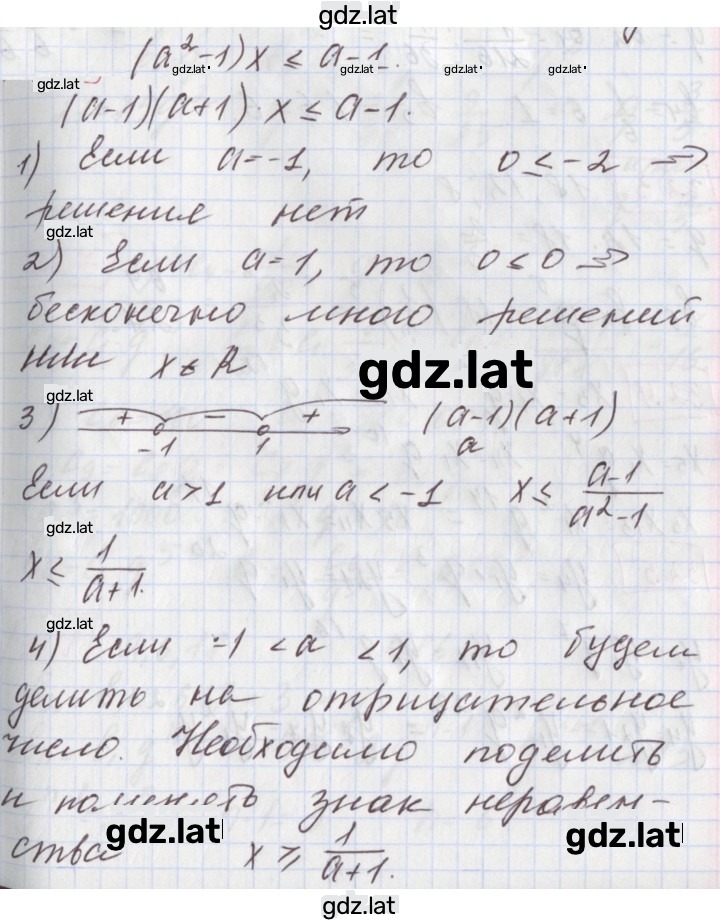 gdz.lat
(a²-1)x ≤ a-1.
gdz.lat gdz.lat gdz.lat gdz.lat
gdz.lat
(a-1)(a+1)·x ≤ a-1.
1) Если a=-1, то 0 ≤ -2 ⇒
решения нет
gdz.lat
2) Если a=1, то 0 ≤ 0 ⇒
бесконечно много решений
или x ∈ R
gdz.lat
gdz.lat
3) + − + (a-1)(a+1)
-1 1 a
Если a>1 или a<-1 x ≤ \frac{a-1}{a²-1}
gdz.lat
x ≤ \frac{1}{a+1}.
gdz.lat
4) Если -1<a<1, то будем
делить на отрицательное
число. Необходимо поделить
и поменять знак неравен-
gdz.lat gdz.lat
ства x ≥ \frac{1}{a+1}.
gdz.lat